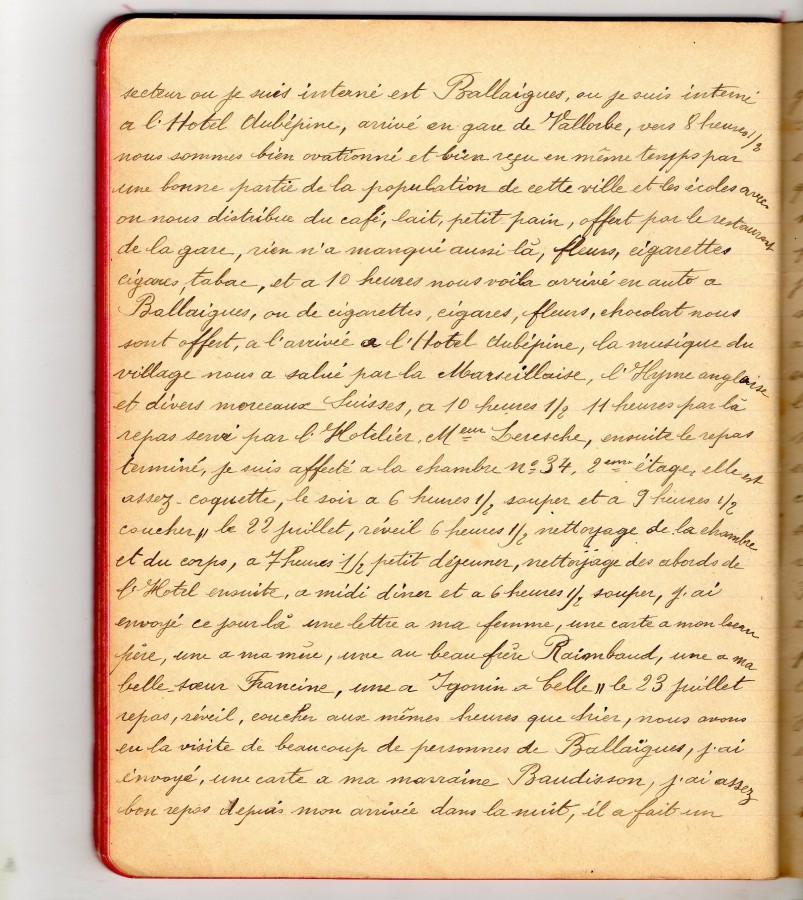 secteur ou je suis interné est Ballaigues, ou je suis interné
a l'Hotel Aubépine, arrivé en gare de Vallorbe, vers 8 heures 1/2
nous sommes bien ovationné et bien reçu en même temps par
une bonne partie de la population de cette ville et les écoles avec
on nous distribue du café, lait, petit pain, offert par le restaurant
de la gare, rien n'a manqué aussi là, fleurs, cigarettes
cigares, tabac, et a 10 heures nous voila arrivé en auto a
Ballaigues, ou de cigarettes, cigares, fleurs, chocolat nous
sont offert, a l'arrivée a l'Hotel Aubépine, la musique du
village nous a salué par la Marseillaise, l'Hyme anglaise
et divers morceaux Suisses, a 10 heures 1/2 11 heures par là
repas servi par l'Hotelier, Meur Leresche, ensuite le repas
terminé, je suis affecté a la chambre no 34, 2eme étage, elle est
assez-coquette, le soir a 6 heures 1/2 souper et a 9 heures 1/2
coucher,, le 22 juillet, réveil 6 heures 1/2 nettoyage de la chambre
et du corps, a 7 heures 1/2 petit déjeuner, nettoyage des abords de
l'Hotel ensuite, a midi diner et a 6 heures 1/2 souper, j'ai
envoyé ce jour là une lettre a ma femme, une carte a mon beau
père, une a ma mère, une au beau frère Raimbaud, une a ma
belle sœur Francine, une a Igonin a Celle,, le 23 juillet
repas, réveil, coucher aux mêmes heures que hier, nous avons
eu la visite de beaucoup de personnes de Ballaïgues, j'ai
envoyé, une carte a ma marraine Baudisson, j'ai assez
bon repos depuis mon arrivée dans la nuit, il a fait un